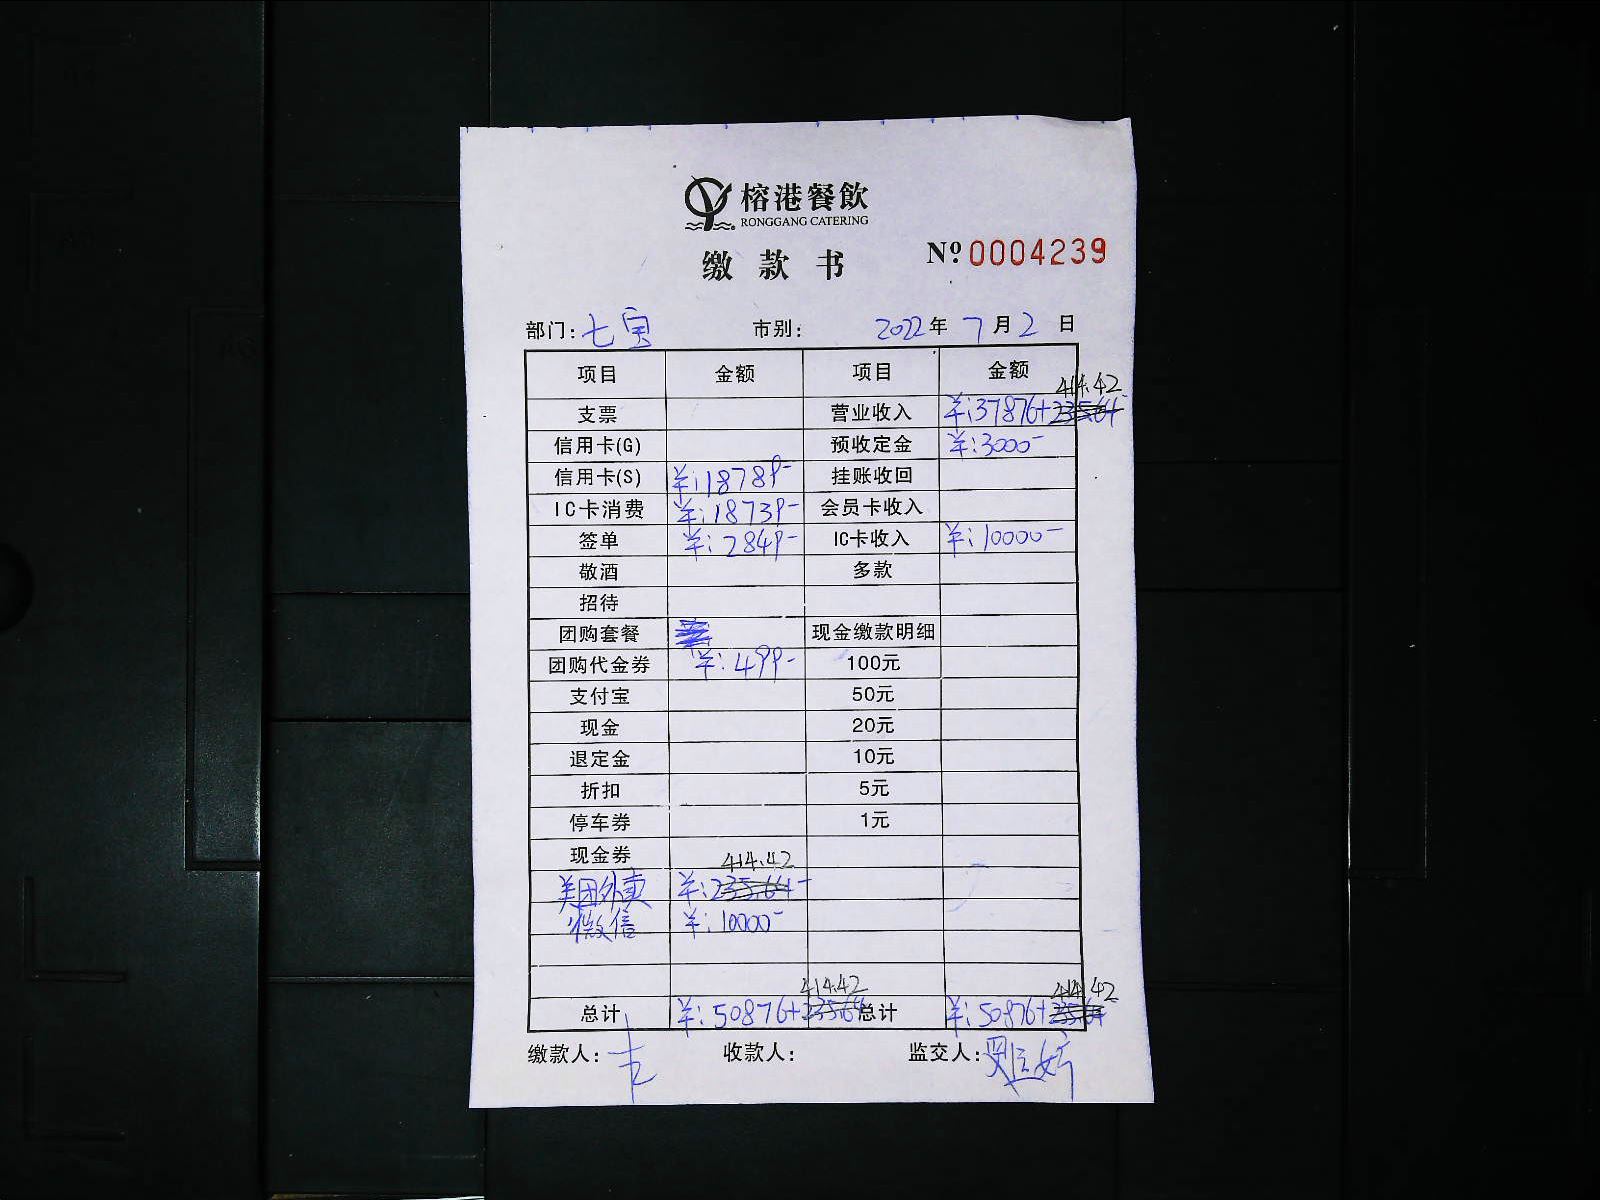 榕港餐飲
RONGGANG CATERING
缴款书 №0004239
部门: 七宝 市别: 2022年 7月2日
项目 金额 项目 金额
414.42
支票 营业收入 ¥:37876+235.64
信用卡(G) 预收定金 ¥:3000-
信用卡(S) ¥:18789- 挂账收回
IC卡消费 ¥:18739- 会员卡收入
签单 ¥:2849- IC卡收入 ¥:10000-
敬酒 多款
招待
团购套餐 现金缴款明细
团购代金券 ¥:499- 100元
支付宝 50元
现金 20元
退定金 10元
折扣 5元
停车券 1元
现金券 414.42
美团外卖 ¥:235.64-
微信 ¥:10000-
414.42 414.42
总计 ¥:50876+235.64 总计 ¥:50876+235.64
缴款人: 收款人: 监交人: